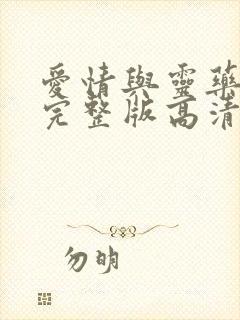 愛情與靈藥
完整版高清
勿明